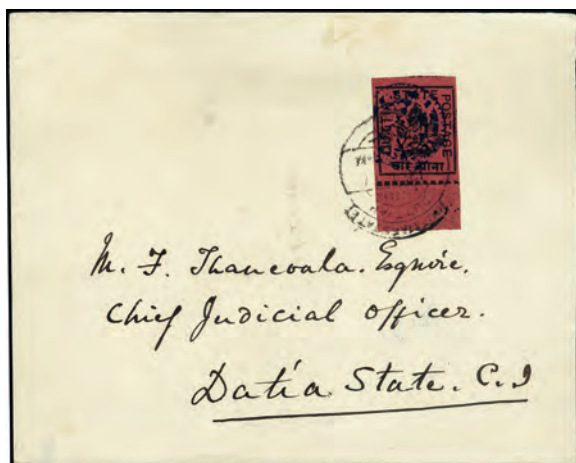 DUTTIA STATE POSTAGE
चार आना
M. F. Thancoala. Esquire.
Chief Judicial Officer.
Datia State. C. I